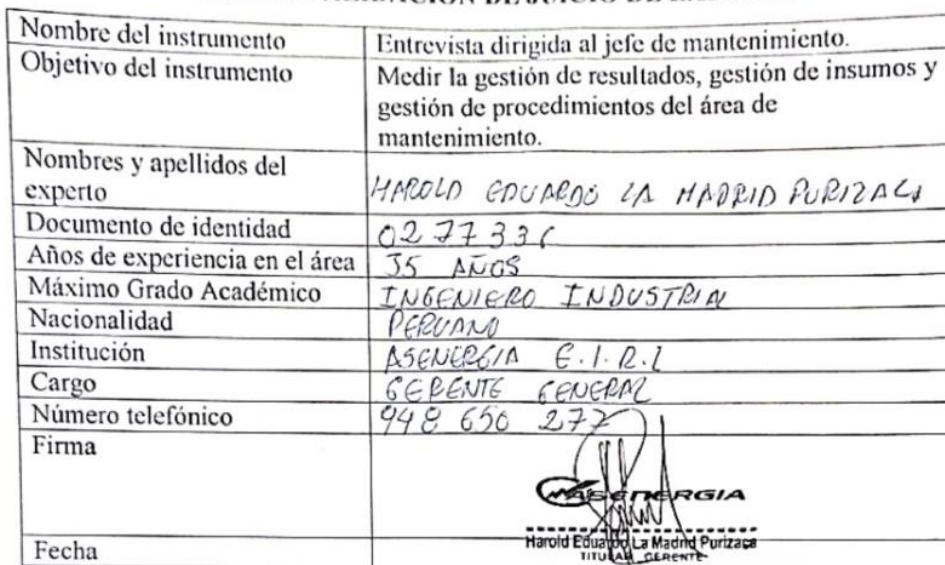 Nombre del instrumento Entrevista dirigida al jefe de mantenimiento.
Objetivo del instrumento Medir la gestión de resultados, gestión de insumos y
gestión de procedimientos del área de
mantenimiento.
Nombres y apellidos del
experto HAROLD EDUARDO LA MADRID PURIZACA
Documento de identidad
Años de experiencia en el área 35 AÑOS
Máximo Grado Académico INGENIERO INDUSTRIAL
Nacionalidad PERUANO
Institución ASENERGIA E.I.R.L
Cargo GERENTE GENERAL
Número telefónico 948 650 277
Firma
ASENERGIA
Harold Eduardo La Madrid Purizaca
TITULAR GERENTE
Fecha